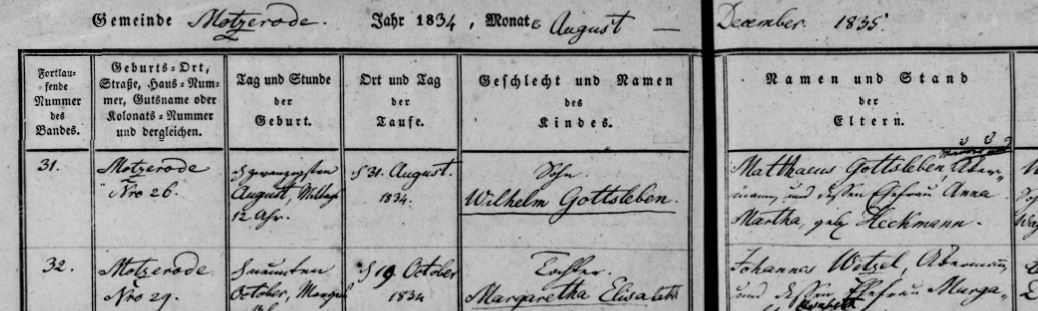 Gemeinde Motzerode. Jahr 1834, Monate August — December. 1835.
Fortlau-
fende
Nummer
des
Bandes.
Geburts-Ort,
Straße, Haus-Num-
mer, Gutsname oder
Kolonats-Nummer
und dergleichen.
Tag und Stunde
der
Geburt.
Ort und Tag
der
Taufe.
Geschlecht und Namen
des
Kindes.
Namen und Stand
der
Eltern.
31.
Motzerode
Nro 26.
zwanzigsten
August, Mittags
12 Uhr.
31. August.
1834.
Sohn.
Wilhelm Gottsleben.
Matthaeus Gottsleben, Aker-
mann, und dessen Ehefrau Anna
Martha, geb. Heckmann.
32.
Motzerode.
Nro 29.
neunten
October,
19. October
1834
Tochter.
Margaretha Elisabeth
Johannes Witzel, Akermann,
und dessen Ehefrau Marga-
Elisabeth